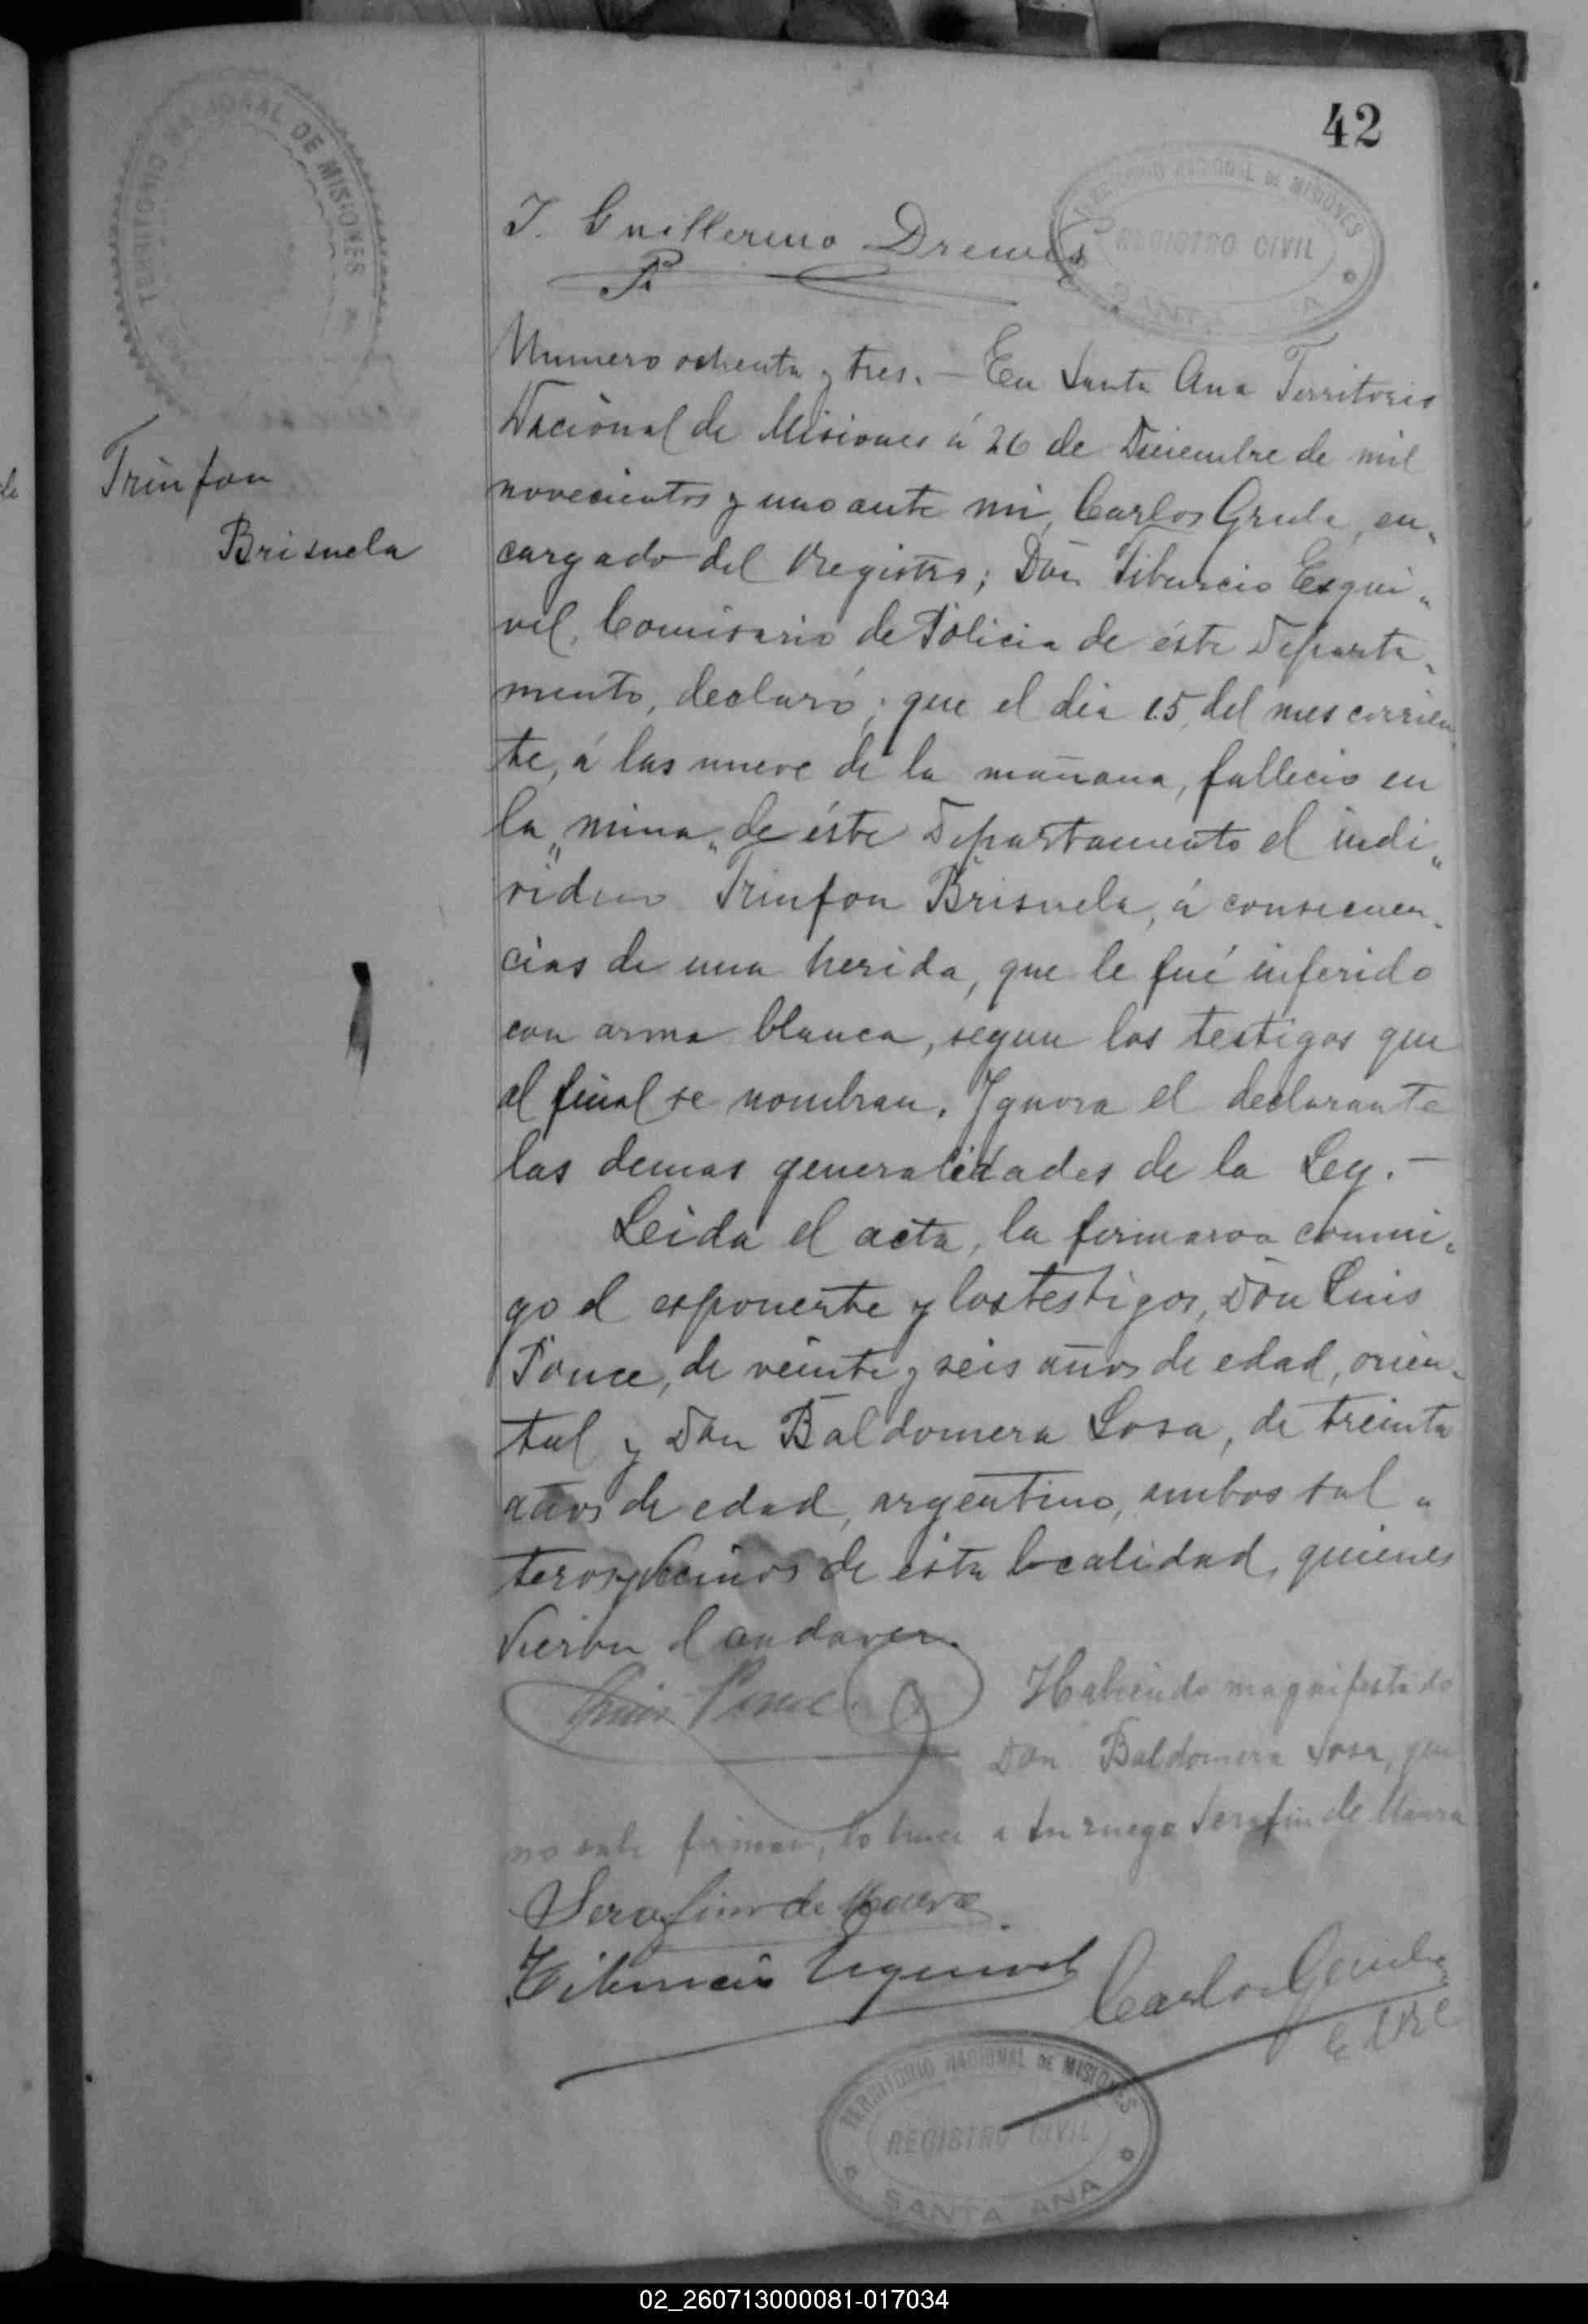 42
TERRITORIO NACIONAL DE MISIONES
REGISTRO CIVIL
SANTA ANA
T. Guillermo Drews
Trinfon
Brisuela
Numero ochenta y tres. — En Santa Ana Territorio
Nacional de Misiones á 26 de Diciembre de mil
novecientos y uno ante mi, Carlos Grula, en„
cargado del Registro; Don Tiburcio Esqui„
vel, Comisario de Policia de éste Departa„
mento, declaró; que el dia 15, del mes corrien„
te, á las nueve de la mañana, fallecio en
la „mina„ de éste Departamento el indi„
viduo Trinfon Brisuela, á consecuen„
cias de una herida, que le fué inferido
con arma blanca, segun los testigos que
al final se nombran. Ignora el declarante
las demas generalidades de la Ley. —
Leida el acta, la firmaron conmi„
go el esponente y los testigos, Don Luis
Ponce, de veinte y seis años de edad, orien„
tal y Don Baldomera Sosa, de treinta
años de edad, argentino, ambos sol„
teros y vecinos de esta localidad, quienes
vieron el cadaver.
Luis Ponce
Habiendo magnifestado
Don Baldomera Sosa, que
no sabe firmar, lo hace a su ruego Serafin de Moura
Serafim de Moura
Tiburcio Esquivel
Carlos Grula
E. del R. C
TERRITORIO NACIONAL DE MISIONES
REGISTRO CIVIL
SANTA ANA
02_260713000081-017034